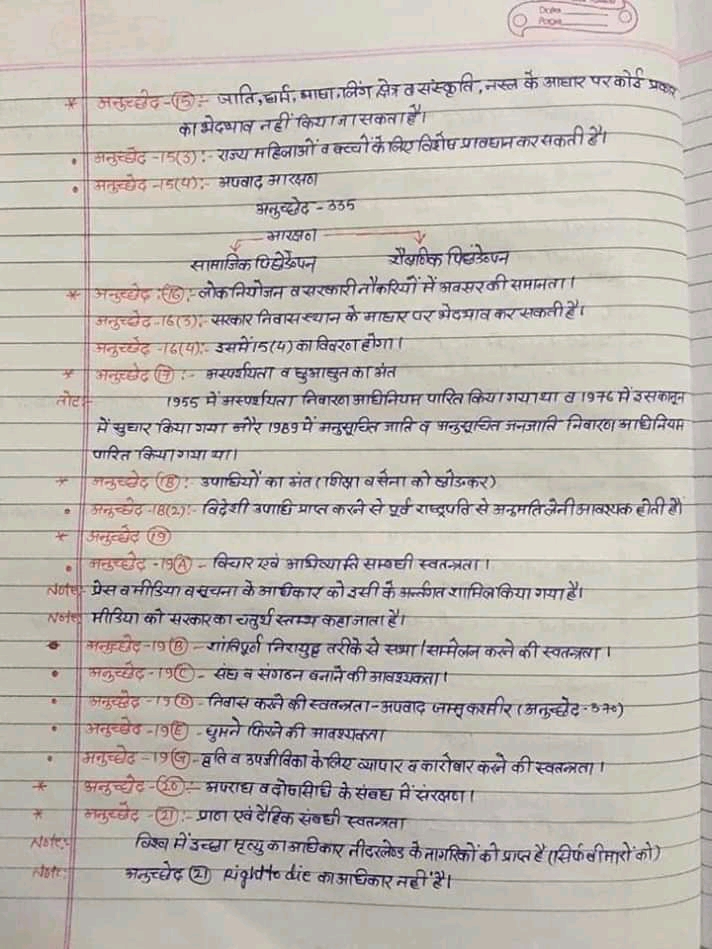 Date
Page
* अनुच्छेद-(15):- जाति, धर्म, भाषा, लिंग क्षेत्र व संस्कृति, नस्ल के आधार पर कोई प्रकार
का भेदभाव नहीं किया जा सकता है।
• अनुच्छेद-15(3):- राज्य महिलाओं व बच्चों के लिए विशेष प्रावधान कर सकती है।
• अनुच्छेद-15(4):- अपवाद आरक्षण
अनुच्छेद-335
आरक्षण
सामाजिक पिछड़ेपन शैक्षणिक पिछड़ेपन
* अनुच्छेद:(16):- लोकनियोजन व सरकारी नौकरियों में अवसर की समानता।
अनुच्छेद-16(3):- सरकार निवास स्थान के आधार पर भेदभाव कर सकती है।
अनुच्छेद-16(4):- इसमें 15(4) का विवरण होगा।
* अनुच्छेद (17):- अस्पर्शयता व छुआछुत का अंत
नोट:- 1955 में अस्पर्शयता निवारण अधिनियम पारित किया गया था व 1976 में इस कानून
में सुधार किया गया और 1989 में अनुसूचित जाति व अनुसूचित जनजाति निवारण अधिनियम
पारित किया गया था।
* अनुच्छेद (18):- उपाधियों का अंत (शिक्षा व सेना को छोडकर)
• अनुच्छेद-18(2):- विदेशी उपाधि प्राप्त करने से पूर्व राष्ट्रपति से अनुमति लेनी आवश्यक होती है।
* अनुच्छेद (19)
• अनुच्छेद-19(A) - विचार एवं अभिव्याक्ति सम्बधी स्वतन्त्रता।
Note:- प्रेस व मीडिया व सूचना के अधिकार को इसी के अर्न्तगत शामिल किया गया है।
Note:- मीडिया को सरकार का चतुर्थ स्तम्भ कहा जाता है।
• अनुच्छेद-19(B)- शांतिपूर्ण निरायुद्ध तरीके से सभा/सम्मेलन करने की स्वतन्त्रता।
• अनुच्छेद-19(C)- संघ व संगठन बनाने की आवश्यकता।
• अनुच्छेद-19(D)- निवास करने की स्वतन्त्रता-अपवाद जम्मू कश्मीर (अनुच्छेद-370)
• अनुच्छेद-19(E)- घुमने फिरने की आवश्यकता
• अनुच्छेद-19(G)- वृति व उपजीविका के लिए व्यापार व कारोबार करने की स्वतन्त्रता।
* अनुच्छेद-(20):- अपराध व दोषसिधि के संबध में संरक्षण।
* अनुच्छेद-(21):- प्राण एवं दैहिक संबधी स्वतन्त्रता
Note:- विश्व में इच्छा मृत्यु का अधिकार नीदरलेण्ड के नागरिकों को प्राप्त है (सिर्फ बीमारों को)
Note: अनुच्छेद (21) Right to die का अधिकार नहीं है।